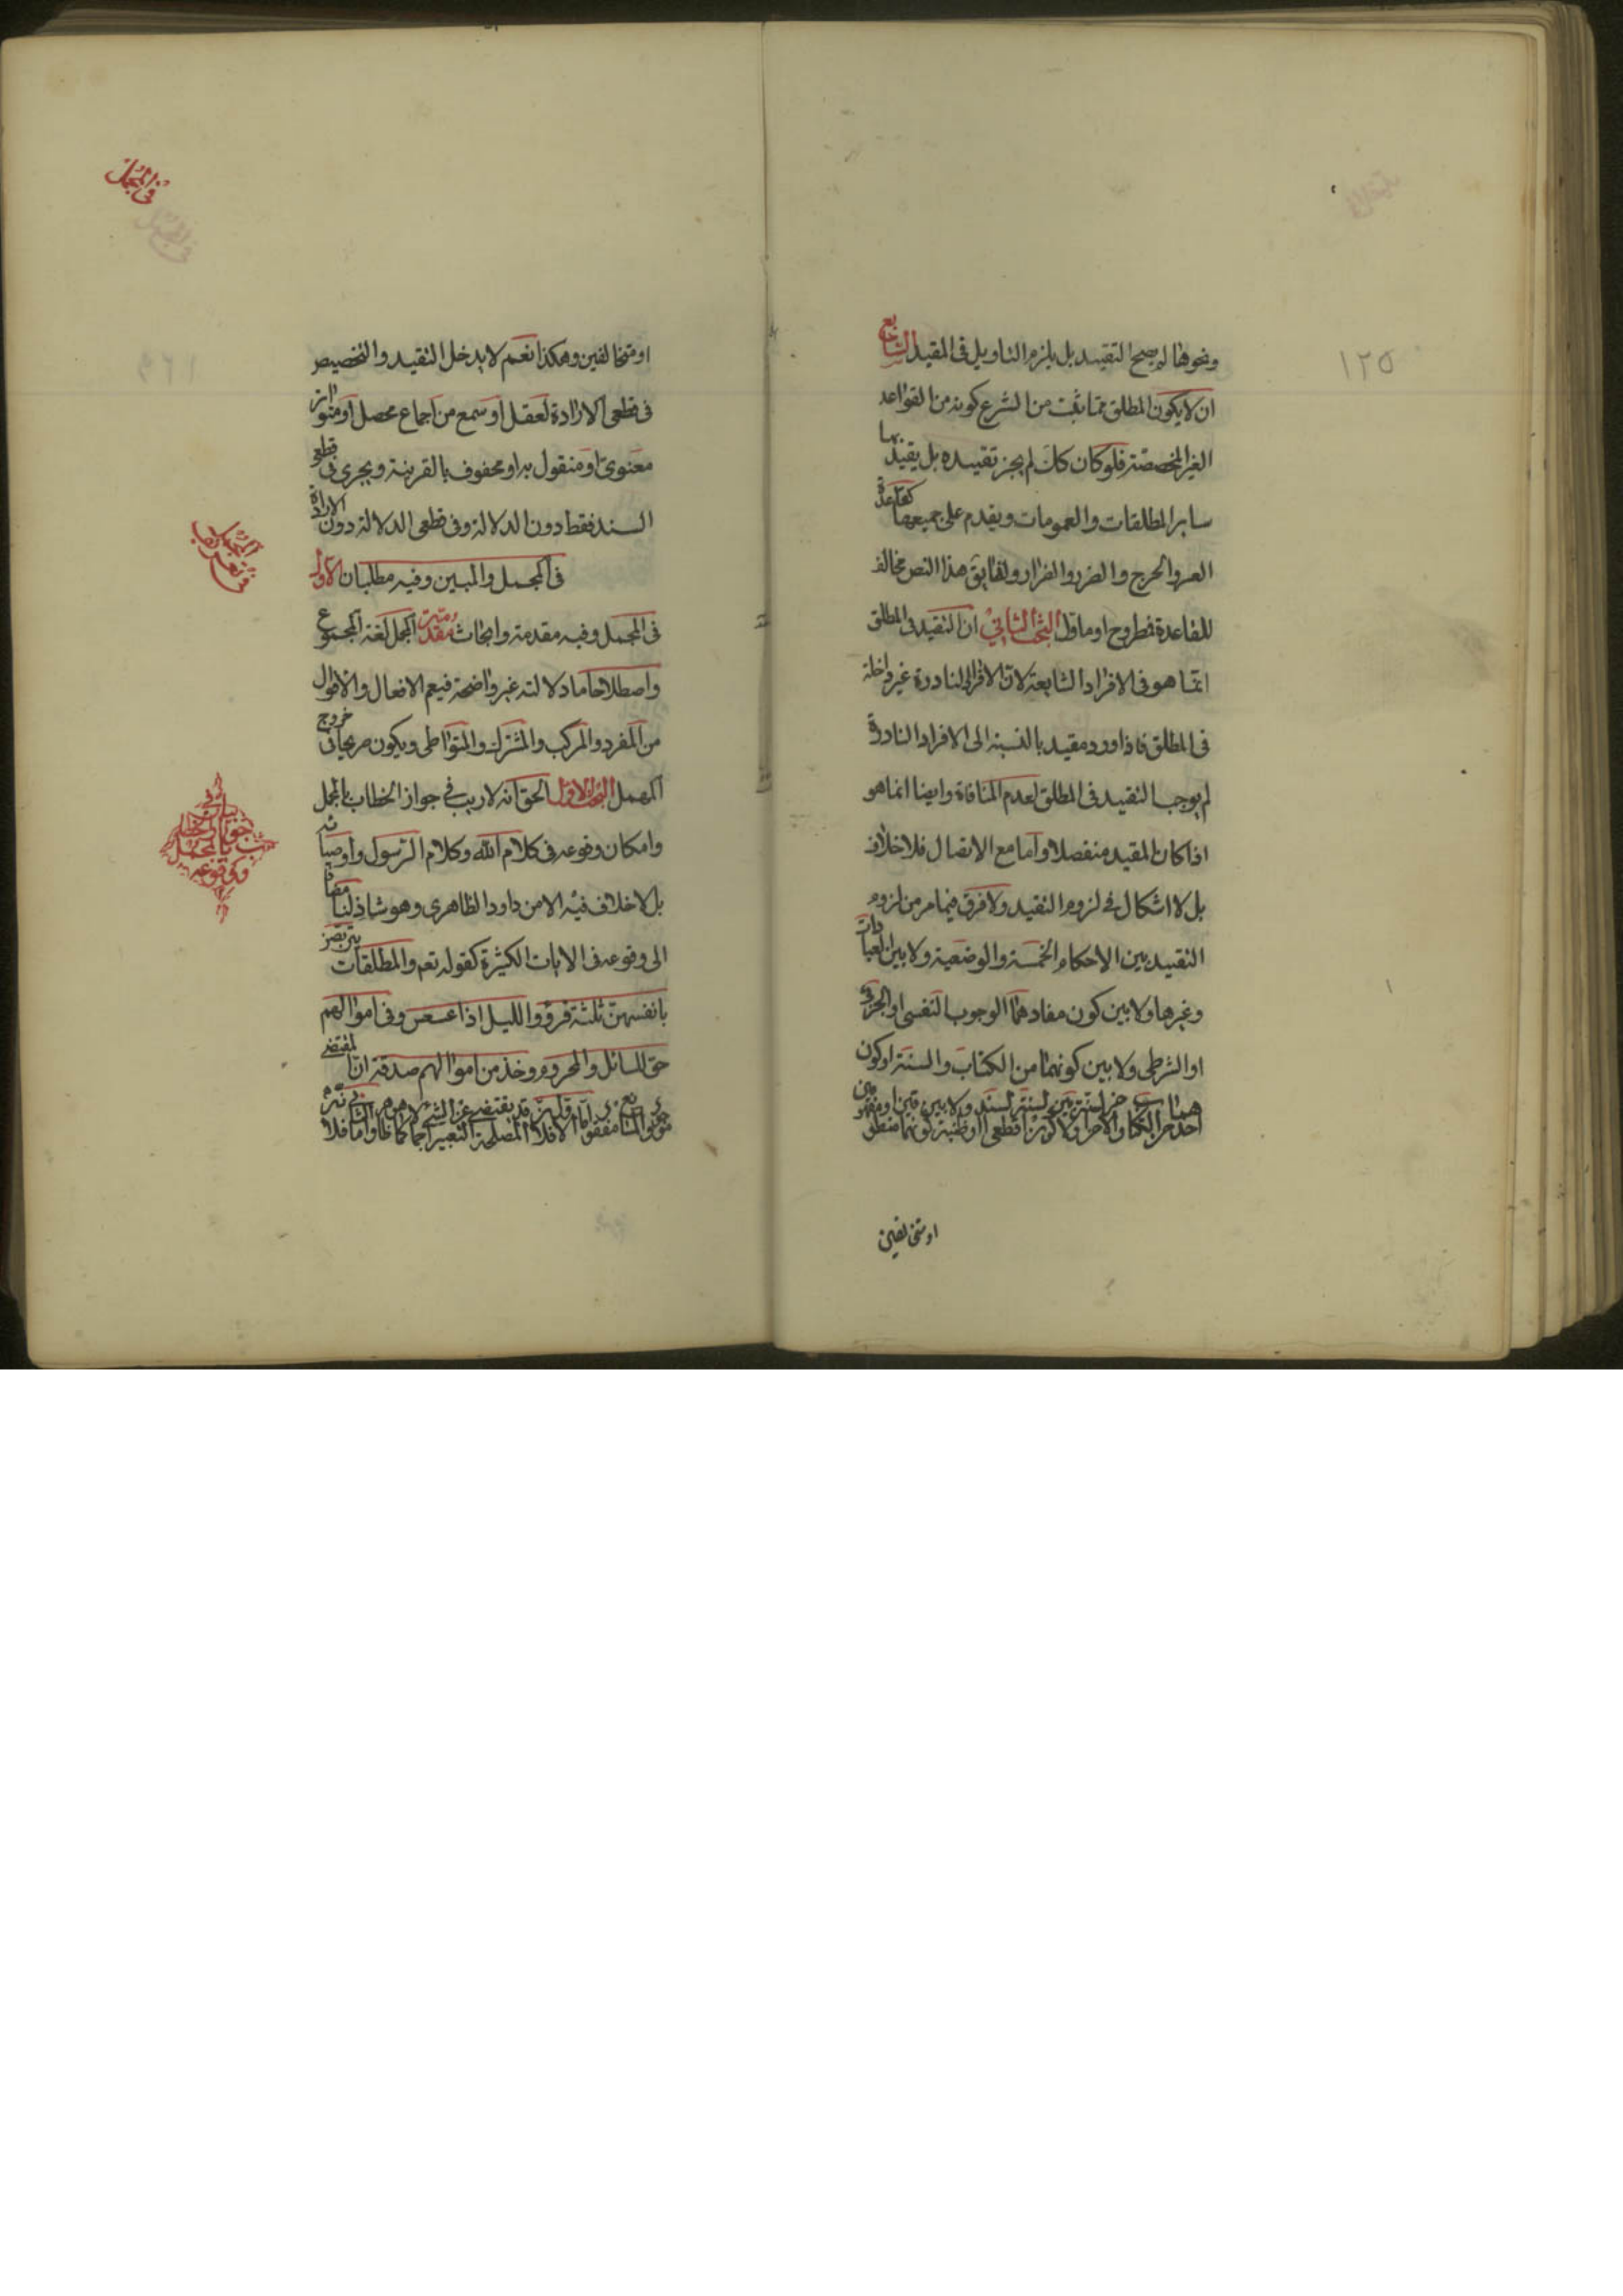 ١٢٥
ونحوها لم يصح التقييد بل يلزم التاويل فى المقيد السابع
ان لا يكون المطلق مما ثبت من الشرع كونه من القواعد
الغير المخصصة فلو كان كك لم يجز تقييده بل يقيد بها
ساير المطلقات والعمومات ويقدم على جميعها كقاعدة
العسر والحرج والضرر والضرار ولقايق هذا النص مخالف
للقاعدة فطروح او ماول البحث الثانى ان التقييد فى المطلق
انما هو فى الافراد الشايعة لان الافراد النادرة غير داخلة
فى المطلق فاذا ورد مقيد بالنسبة الى الافراد النادرة
لم يوجب التقييد فى المطلق لعدم المنافاة وايضا انما هو
اذا كان المقيد منفصلا واما مع الاتصال فلا خلاف
بل لا اشكال فى لزوم التقييد ولا فرق فيما مر من لزوم
التقييد بين الاحكام الخمسة والوضعية ولا بين العبادات
وغيرها ولا بين كون مفادهما الوجوب النفسى او الجزئى
او الشرطى ولا بين كونهما من الكتاب والسنة او كون
احدهما من الكتاب والاخر من السنة ولا بين كون السند قطعيا او ظنيا ولا بين كونهما منطوقين او مفهومين
او متخالفين
فى المجمل
او متخالفين وهكذا نعم لا يدخل التقييد والتخصيص
فى قطعى الارادة لعقل او سمع من اجماع محصل او متواتر
معنوى او منقول به او محفوف بالقرينة ويجرى فى قطعى
السند فقط دون الدلالة وفى قطعى الدلالة دون الارادة
فى المجمل والمبين وفيه مطلبان الاول
فى المجمل وفيه مقدمة وابحاث مقدمة المجمل لغة المجموع
واصطلاحا ما دلالته غير واضحة فيعم الافعال والاقوال
من المفرد والمركب والمشترك والمتواطى ويكون صريحا فى خروج
المهمل البحث الاول الحق انه لا ريب فى جواز الخطاب بالمجمل
وامكان وقوعه فى كلام الله وكلام الرسول واوصيائه
بل لا خلاف فيه الا من داود الظاهرى وهو شاذ لنا مضافا
الى وقوعه فى الايات الكثيرة كقوله تعم والمطلقات يتربصن
بانفسهن ثلثة قروء والليل اذا عسعس وفى اموالهم
حق للسائل والمحروم وخذ من اموالهم صدقة ان المقتضى